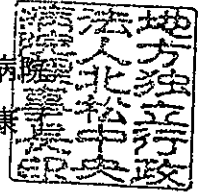 地方独立行政
法人北松中央
病院理事長印
病院